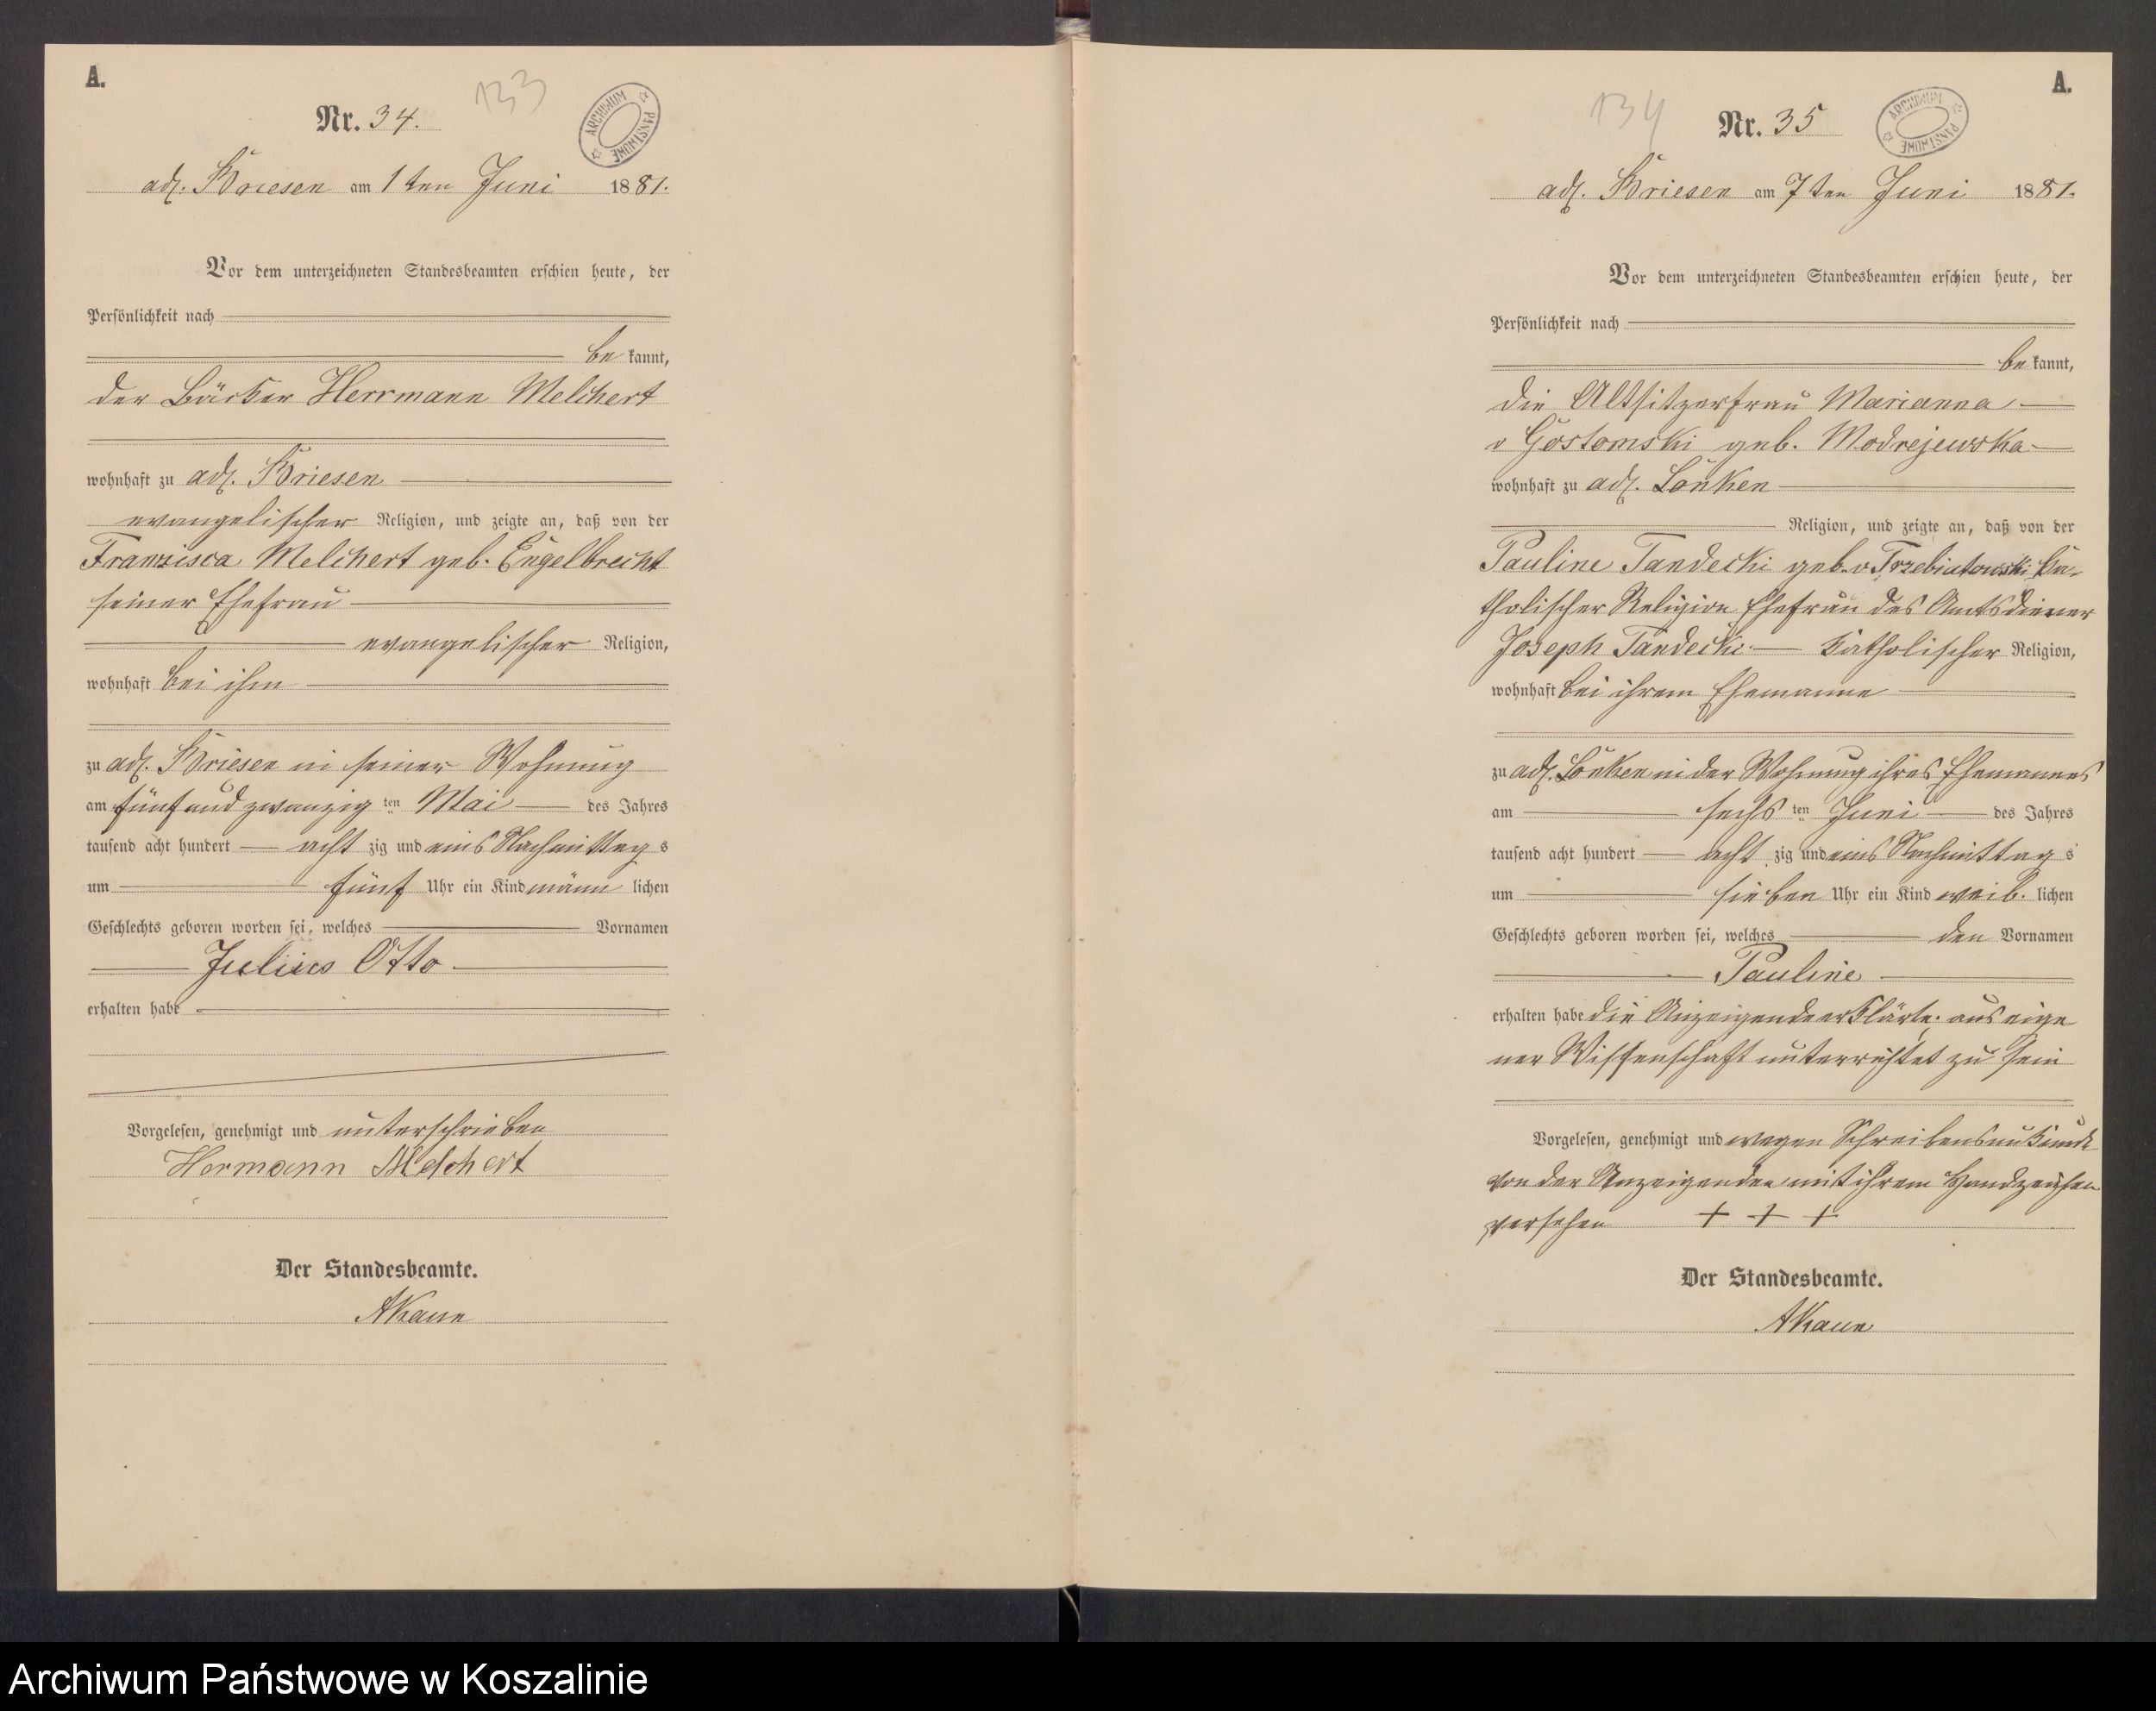 A.
133
Nr. 34.
ARCHIWUM PAŃSTWOWE
adl. Briesen am 1ten Juni 1881.
Vor dem unterzeichneten Standesbeamten erschien heute, der
Persönlichkeit nach
be kannt,
der Bäcker Herrmann Melchert
wohnhaft zu adl. Briesen
evangelischer Religion, und zeigte an, daß von der
Franzisca Melchert geb. Engelbrecht
seiner Ehefrau
evangelischer Religion,
wohnhaft bei ihm
zu adl. Briesen in seiner Wohnung
am fünf und zwanzig ten Mai des Jahres
tausend acht hundert acht zig und eins Nachmittag s
um fünf Uhr ein Kind männ lichen
Geschlechts geboren worden sei, welches Vornamen
Julius Otto
erhalten habe
Vorgelesen, genehmigt und unterschrieben
Hermann Melchert
Der Standesbeamte.
A.
134
Nr. 35
ARCHIWUM PAŃSTWOWE
adl. Briesen am 7ten Juni 1881.
Vor dem unterzeichneten Standesbeamten erschien heute, der
Persönlichkeit nach
be kannt,
die Altsitzerfrau Marianna
v Gostomski geb. Modrejewska
wohnhaft zu adl. Lonken
Religion, und zeigte an, daß von der
Pauline Tandecki geb. v Trzebiatowski ka-
tholischer Religion Ehefrau des Amtsdiener
Joseph Tandecki katholischer Religion,
wohnhaft bei ihrem Ehemanne
zu adl. Lonken in der Wohnung ihres Ehemannes
am sechs ten Juni des Jahres
tausend acht hundert acht zig und eins Nachmittag s
um sieben Uhr ein Kind weib. lichen
Geschlechts geboren worden sei, welches den Vornamen
Pauline
erhalten habe die Anzeigende erklärte aus eige
ner Wissenschaft unterrichtet zu sein
Vorgelesen, genehmigt und wegen Schreibensunkunde
von der Anzeigenden mit ihrem Handzeichen
versehen + + +
Der Standesbeamte.
Archiwum Państwowe w Koszalinie